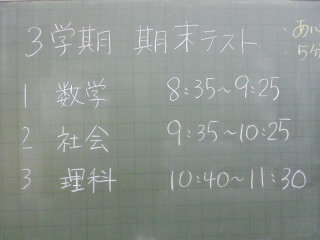 3学期 期末テスト
1 数学 8:35~9:25
2 社会 9:35~10:25
3 理科 10:40~11:30
・あい
・5分